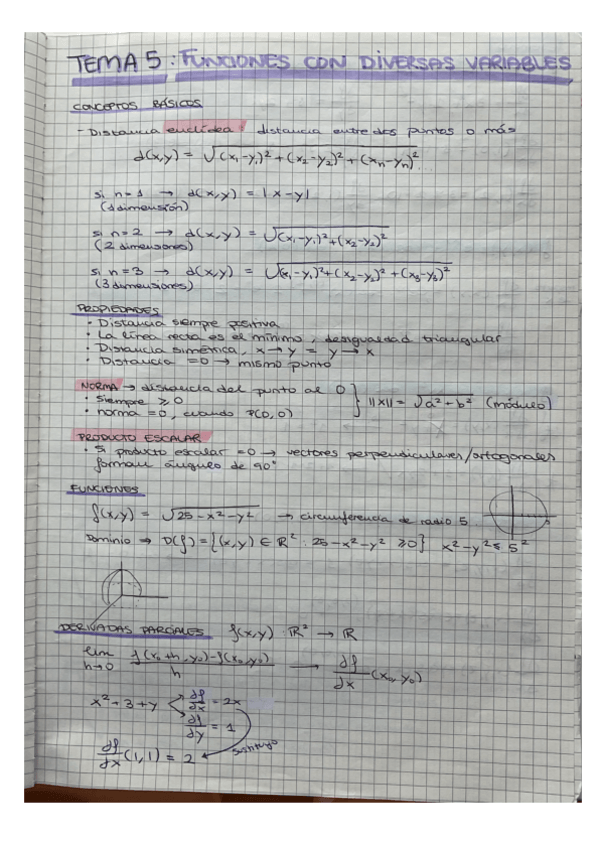 TEMA 5: FUNCIONES CON DIVERSAS VARIABLES
CONCEPTOS BÁSICOS
- Distancia euclídea: distancia entre dos puntos o más
d(x,y) = √(x₁-y₁)² + (x₂-y₂)² + (xₙ-yₙ)²
si n=1 → d(x,y) = |x-y|
(1 dimensión)
si n=2 → d(x,y) = √(x₁-y₁)²+(x₂-y₂)²
(2 dimensiones)
si n=3 → d(x,y) = √(x₁-y₁)²+(x₂-y₂)²+(x₃-y₃)²
(3 dimensiones)
PROPIEDADES
· Distancia siempre positiva
· La línea recta es el mínimo, desigualdad triangular
· Distancia simétrica, x→y = y→x
· Distancia =0 → mismo punto
NORMA → distancia del punto al 0
· siempre ≥ 0
· norma =0, cuando P(0,0)
} ||x|| = √a²+b² (módulo)
PRODUCTO ESCALAR
· Si producto escalar =0 → vectores perpendiculares/ortogonales
forman ángulo de 90°
FUNCIONES
f(x,y) = √25-x²-y² → circunferencia de radio 5
Dominio → D(f) = {(x,y) ∈ R² : 25-x²-y² ≥0} x²-y² ≤ 5²
DERIVADAS PARCIALES f(x,y) R² → R
lim h→0 f(x₀+h, y₀)-f(x₀,y₀) / h → df/dx (x₀, y₀)
x²+3+y df/dx = 2x
df/dy = 1
sustituyo
df/dx (1,1) = 2